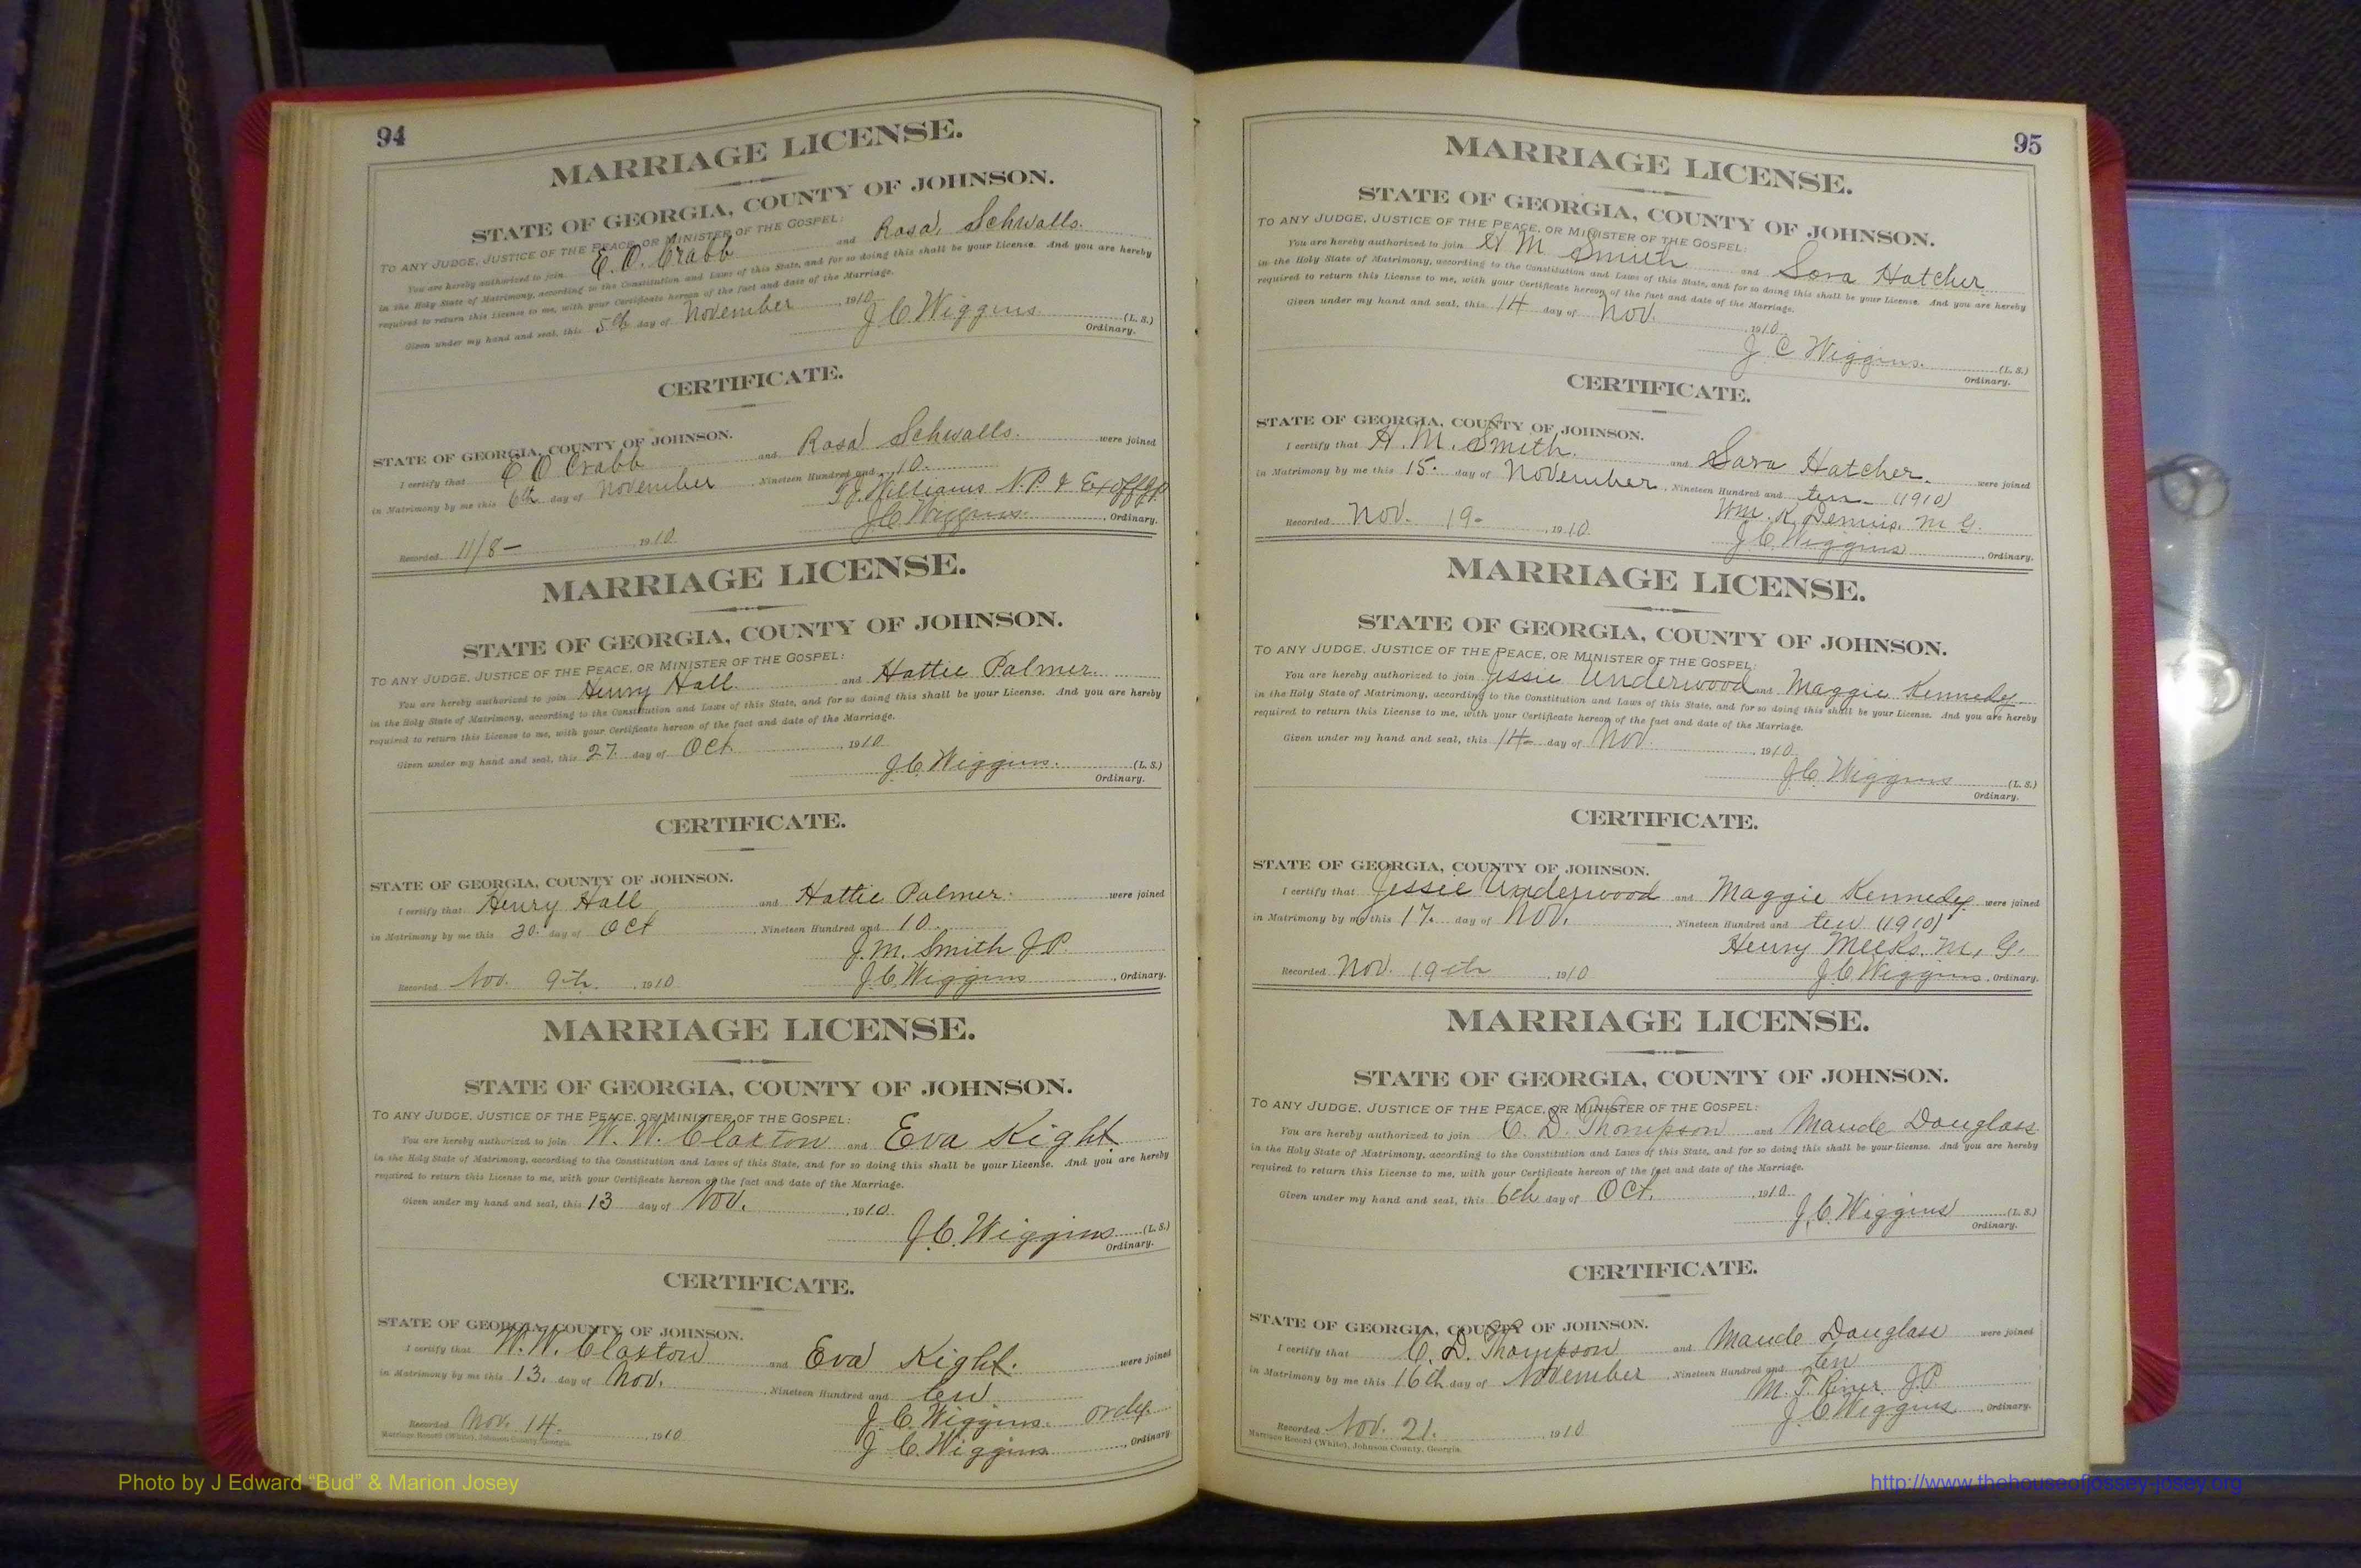 94
MARRIAGE LICENSE.
STATE OF GEORGIA, COUNTY OF JOHNSON.
TO ANY JUDGE, JUSTICE OF THE PEACE, OR MINISTER OF THE GOSPEL:
You are hereby authorized to join E. O. Crabb and Rosa Schwalls.
in the Holy State of Matrimony, according to the Constitution and Laws of this State, and for so doing this shall be your License. And you are hereby
required to return this License to me, with your Certificate hereon of the fact and date of the Marriage.
Given under my hand and seal, this 5th day of November, 1910
J C Wiggins (L. S.)
Ordinary.
CERTIFICATE.
STATE OF GEORGIA, COUNTY OF JOHNSON.
I certify that E O Crabb and Rosa Schwalls. were joined
in Matrimony by me this 6th day of November, Nineteen Hundred and 10.
Williams N.P. & Ex off JP
Recorded 11/8 - , 1910 J C Wiggins, Ordinary.
MARRIAGE LICENSE.
STATE OF GEORGIA, COUNTY OF JOHNSON.
TO ANY JUDGE, JUSTICE OF THE PEACE, OR MINISTER OF THE GOSPEL:
You are hereby authorized to join Henry Hall and Hattie Palmer.
in the Holy State of Matrimony, according to the Constitution and Laws of this State, and for so doing this shall be your License. And you are hereby
required to return this License to me, with your Certificate hereon of the fact and date of the Marriage.
Given under my hand and seal, this 27 day of Oct, 1910
J. C. Wiggins. (L. S.)
Ordinary.
CERTIFICATE.
STATE OF GEORGIA, COUNTY OF JOHNSON.
I certify that Henry Hall and Hattie Palmer. were joined
in Matrimony by me this 30 day of Oct, Nineteen Hundred and 10.
J. M. Smith J P.
Recorded Nov. 9th, 1910 J. C. Wiggins, Ordinary.
MARRIAGE LICENSE.
STATE OF GEORGIA, COUNTY OF JOHNSON.
TO ANY JUDGE, JUSTICE OF THE PEACE, OR MINISTER OF THE GOSPEL:
You are hereby authorized to join W. W. Claxton and Eva Kight
in the Holy State of Matrimony, according to the Constitution and Laws of this State, and for so doing this shall be your License. And you are hereby
required to return this License to me, with your Certificate hereon of the fact and date of the Marriage.
Given under my hand and seal, this 13 day of Nov., 1910.
J. C. Wiggins (L. S.)
Ordinary.
CERTIFICATE.
STATE OF GEORGIA, COUNTY OF JOHNSON.
I certify that W. W. Claxton and Eva Kight. were joined
in Matrimony by me this 13. day of Nov., Nineteen Hundred and ten
J. C. Wiggins. Ordy.
Recorded Nov. 14., 1910 J. C. Wiggins, Ordinary.
Marriage Record (White), Johnson County, Georgia.
95
MARRIAGE LICENSE.
STATE OF GEORGIA, COUNTY OF JOHNSON.
TO ANY JUDGE, JUSTICE OF THE PEACE, OR MINISTER OF THE GOSPEL:
You are hereby authorized to join H M Smith and Sara Hatcher
in the Holy State of Matrimony, according to the Constitution and Laws of this State, and for so doing this shall be your License. And you are hereby
required to return this License to me, with your Certificate hereon of the fact and date of the Marriage.
Given under my hand and seal, this 14 day of Nov., 1910
J C Wiggins. (L. S.)
Ordinary.
CERTIFICATE.
STATE OF GEORGIA, COUNTY OF JOHNSON.
I certify that H. M. Smith. and Sara Hatcher. were joined
in Matrimony by me this 15. day of November, Nineteen Hundred and ten (1910)
Wm. K. Dennis. M G.
Recorded Nov. 19 - , 1910 J. C. Wiggins, Ordinary.
MARRIAGE LICENSE.
STATE OF GEORGIA, COUNTY OF JOHNSON.
TO ANY JUDGE, JUSTICE OF THE PEACE, OR MINISTER OF THE GOSPEL:
You are hereby authorized to join Jessie Underwood and Maggie Kennedy
in the Holy State of Matrimony, according to the Constitution and Laws of this State, and for so doing this shall be your License. And you are hereby
required to return this License to me, with your Certificate hereon of the fact and date of the Marriage.
Given under my hand and seal, this 14 day of Nov., 1910
J. C. Wiggins (L. S.)
Ordinary.
CERTIFICATE.
STATE OF GEORGIA, COUNTY OF JOHNSON.
I certify that Jessie Underwood and Maggie Kennedy were joined
in Matrimony by me this 17. day of Nov., Nineteen Hundred and ten (1910)
Henry Meeks. M. G.
Recorded Nov. 19th, 1910 J. C. Wiggins, Ordinary.
MARRIAGE LICENSE.
STATE OF GEORGIA, COUNTY OF JOHNSON.
TO ANY JUDGE, JUSTICE OF THE PEACE, OR MINISTER OF THE GOSPEL:
You are hereby authorized to join C. D. Thompson and Maude Douglass
in the Holy State of Matrimony, according to the Constitution and Laws of this State, and for so doing this shall be your License. And you are hereby
required to return this License to me, with your Certificate hereon of the fact and date of the Marriage.
Given under my hand and seal, this 6th day of Oct., 1910.
J. C. Wiggins (L. S.)
Ordinary.
CERTIFICATE.
STATE OF GEORGIA, COUNTY OF JOHNSON.
I certify that C. D. Thompson and Maude Douglass were joined
in Matrimony by me this 16th day of November, Nineteen Hundred and ten
M. T. Riner J.P.
Recorded Nov. 21., 1910 J C Wiggins, Ordinary.
Marriage Record (White), Johnson County, Georgia.
Photo by J Edward “Bud” & Marion Josey
http://www.thehouseofjossey-josey.org